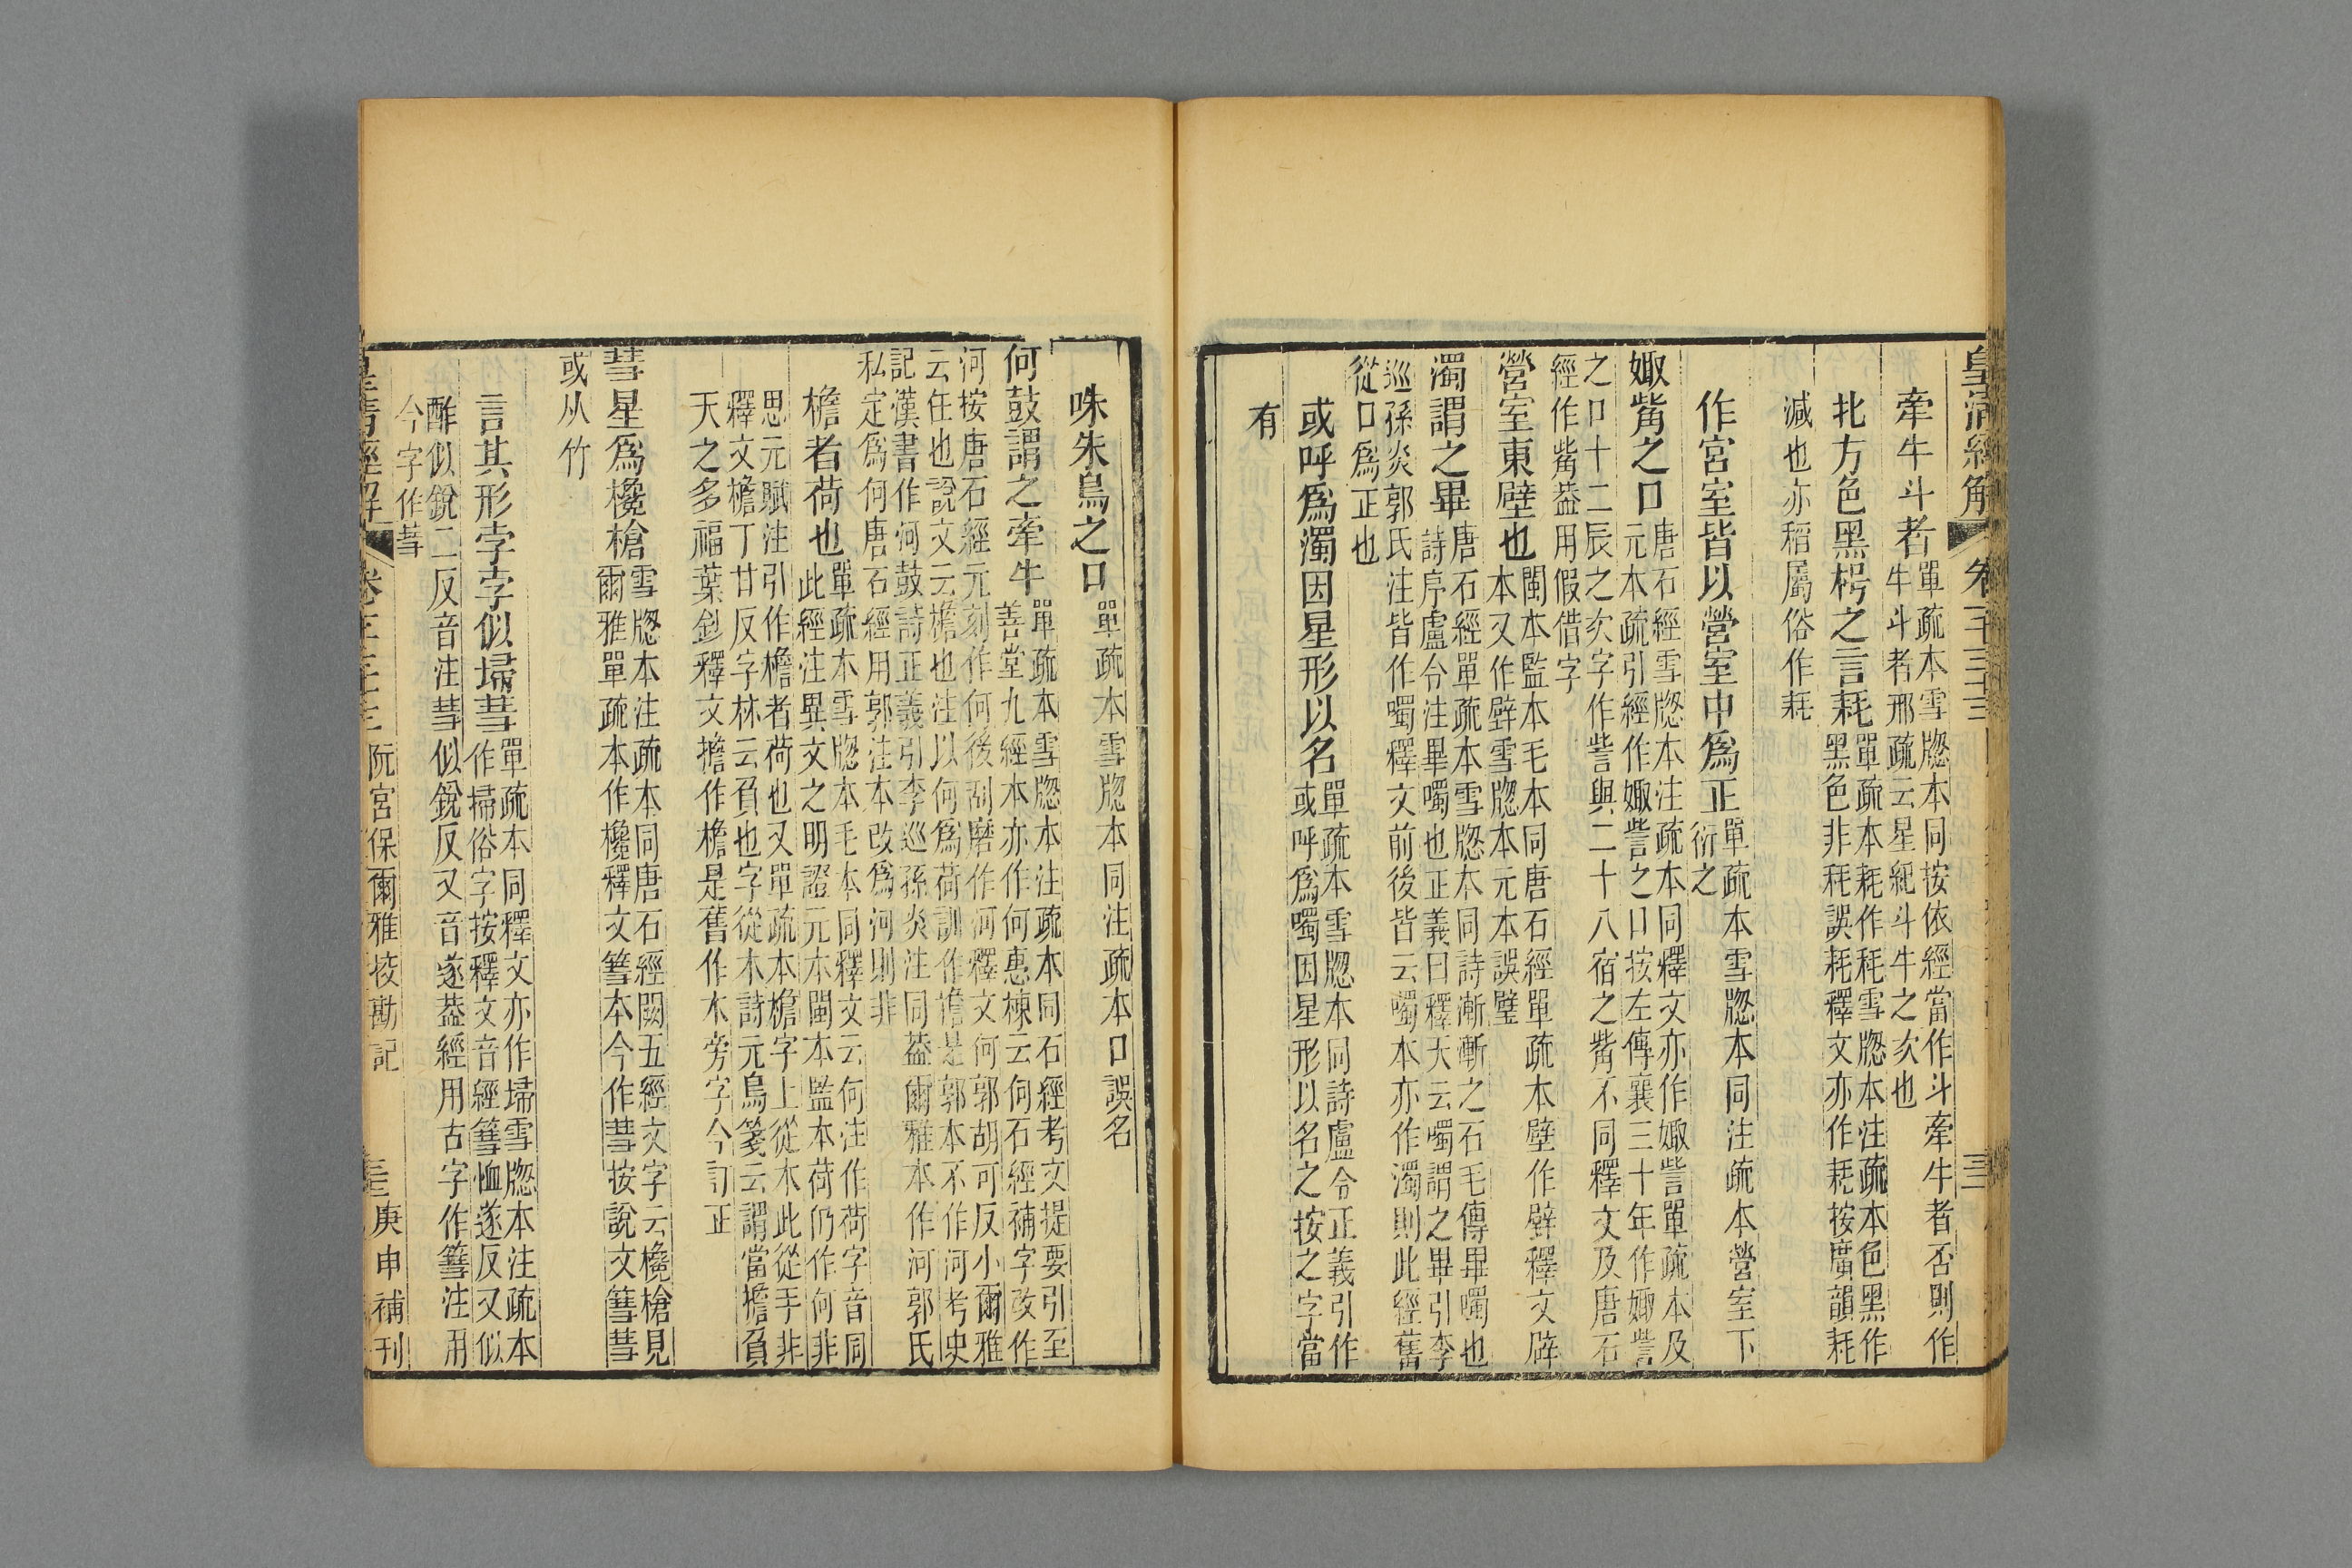 皇清經解 卷一千三十三 三
牽牛斗者單疏本雪牕本同按依經當作斗牽牛者否則作
牛斗者邢疏云星紀斗牛之次也
北方色黑枵之言耗單疏本耗作秏雪牕本注疏本色黑作
黑色非秏誤耗釋文亦作耗按廣韻耗
減也亦稻屬俗作耗
作宮室皆以營室中爲正單疏本雪牕本同注疏本營室下
衍之
娵觜之口唐石經雪牕本注疏本同釋文亦作娵訾單疏本及
元本疏引經作娵訾之口按左傳襄三十年作娵訾
之口十二辰之次字作訾與二十八宿之觜不同釋文及唐石
經作觜葢用假借字
營室東壁也閩本監本毛本同唐石經單疏本壁作辟釋文辟
本又作壁雪牕本元本誤璧
濁謂之畢唐石經單疏本雪牕本同詩漸漸之石毛傳畢噣也
詩序盧令注畢噣也正義曰釋天云噣謂之畢引李
巡孫炎郭氏注皆作噣釋文前後皆云噣本亦作濁則此經舊
從口爲正也
或呼爲濁因星形以名單疏本雪牕本同詩盧令正義引作
或呼爲噣因星形以名之按之字當
有
咮朱鳥之口單疏本雪牕本同注疏本口誤名
何鼓謂之牽牛單疏本雪牕本注疏本同石經考文提要引至
善堂九經本亦作何惠棟云何石經補字改作
河按唐石經元刻作何後刮磨作河釋文何郭胡可反小爾雅
云任也說文云檐也注以何爲荷訓作擔是郭本不作河考史
記漢書作河鼓詩正義引李巡孫炎注同葢爾雅本作河郭氏
私定爲何唐石經用郭注本改爲河則非
檐者荷也單疏本雪牕本毛本同釋文云何注作荷字音同
此經注異文之明證元本閩本監本荷仍作何非
思元賦注引作檐者荷也又單疏本檐字上從木此從手非
釋文檐丁甘反字林云負也字從木詩元鳥箋云謂當擔負
天之多福葉鈔釋文擔作檐是舊作木旁字今訂正
彗星爲欃槍雪牕本注疏本同唐石經闕五經文字云欃槍見
爾雅單疏本作欃釋文篲本今作彗按說文篲彗
或从竹
言其形孛孛似埽彗單疏本同釋文亦作埽雪牕本注疏本
作掃俗字按釋文音經篲恤遂反又似
醉似銳二反音注彗似銳反又音遂葢經用古字作篲注用
今字作彗
皇清經解 卷一千三十三 阮宮保爾雅挍勘記 三 庚申補刊